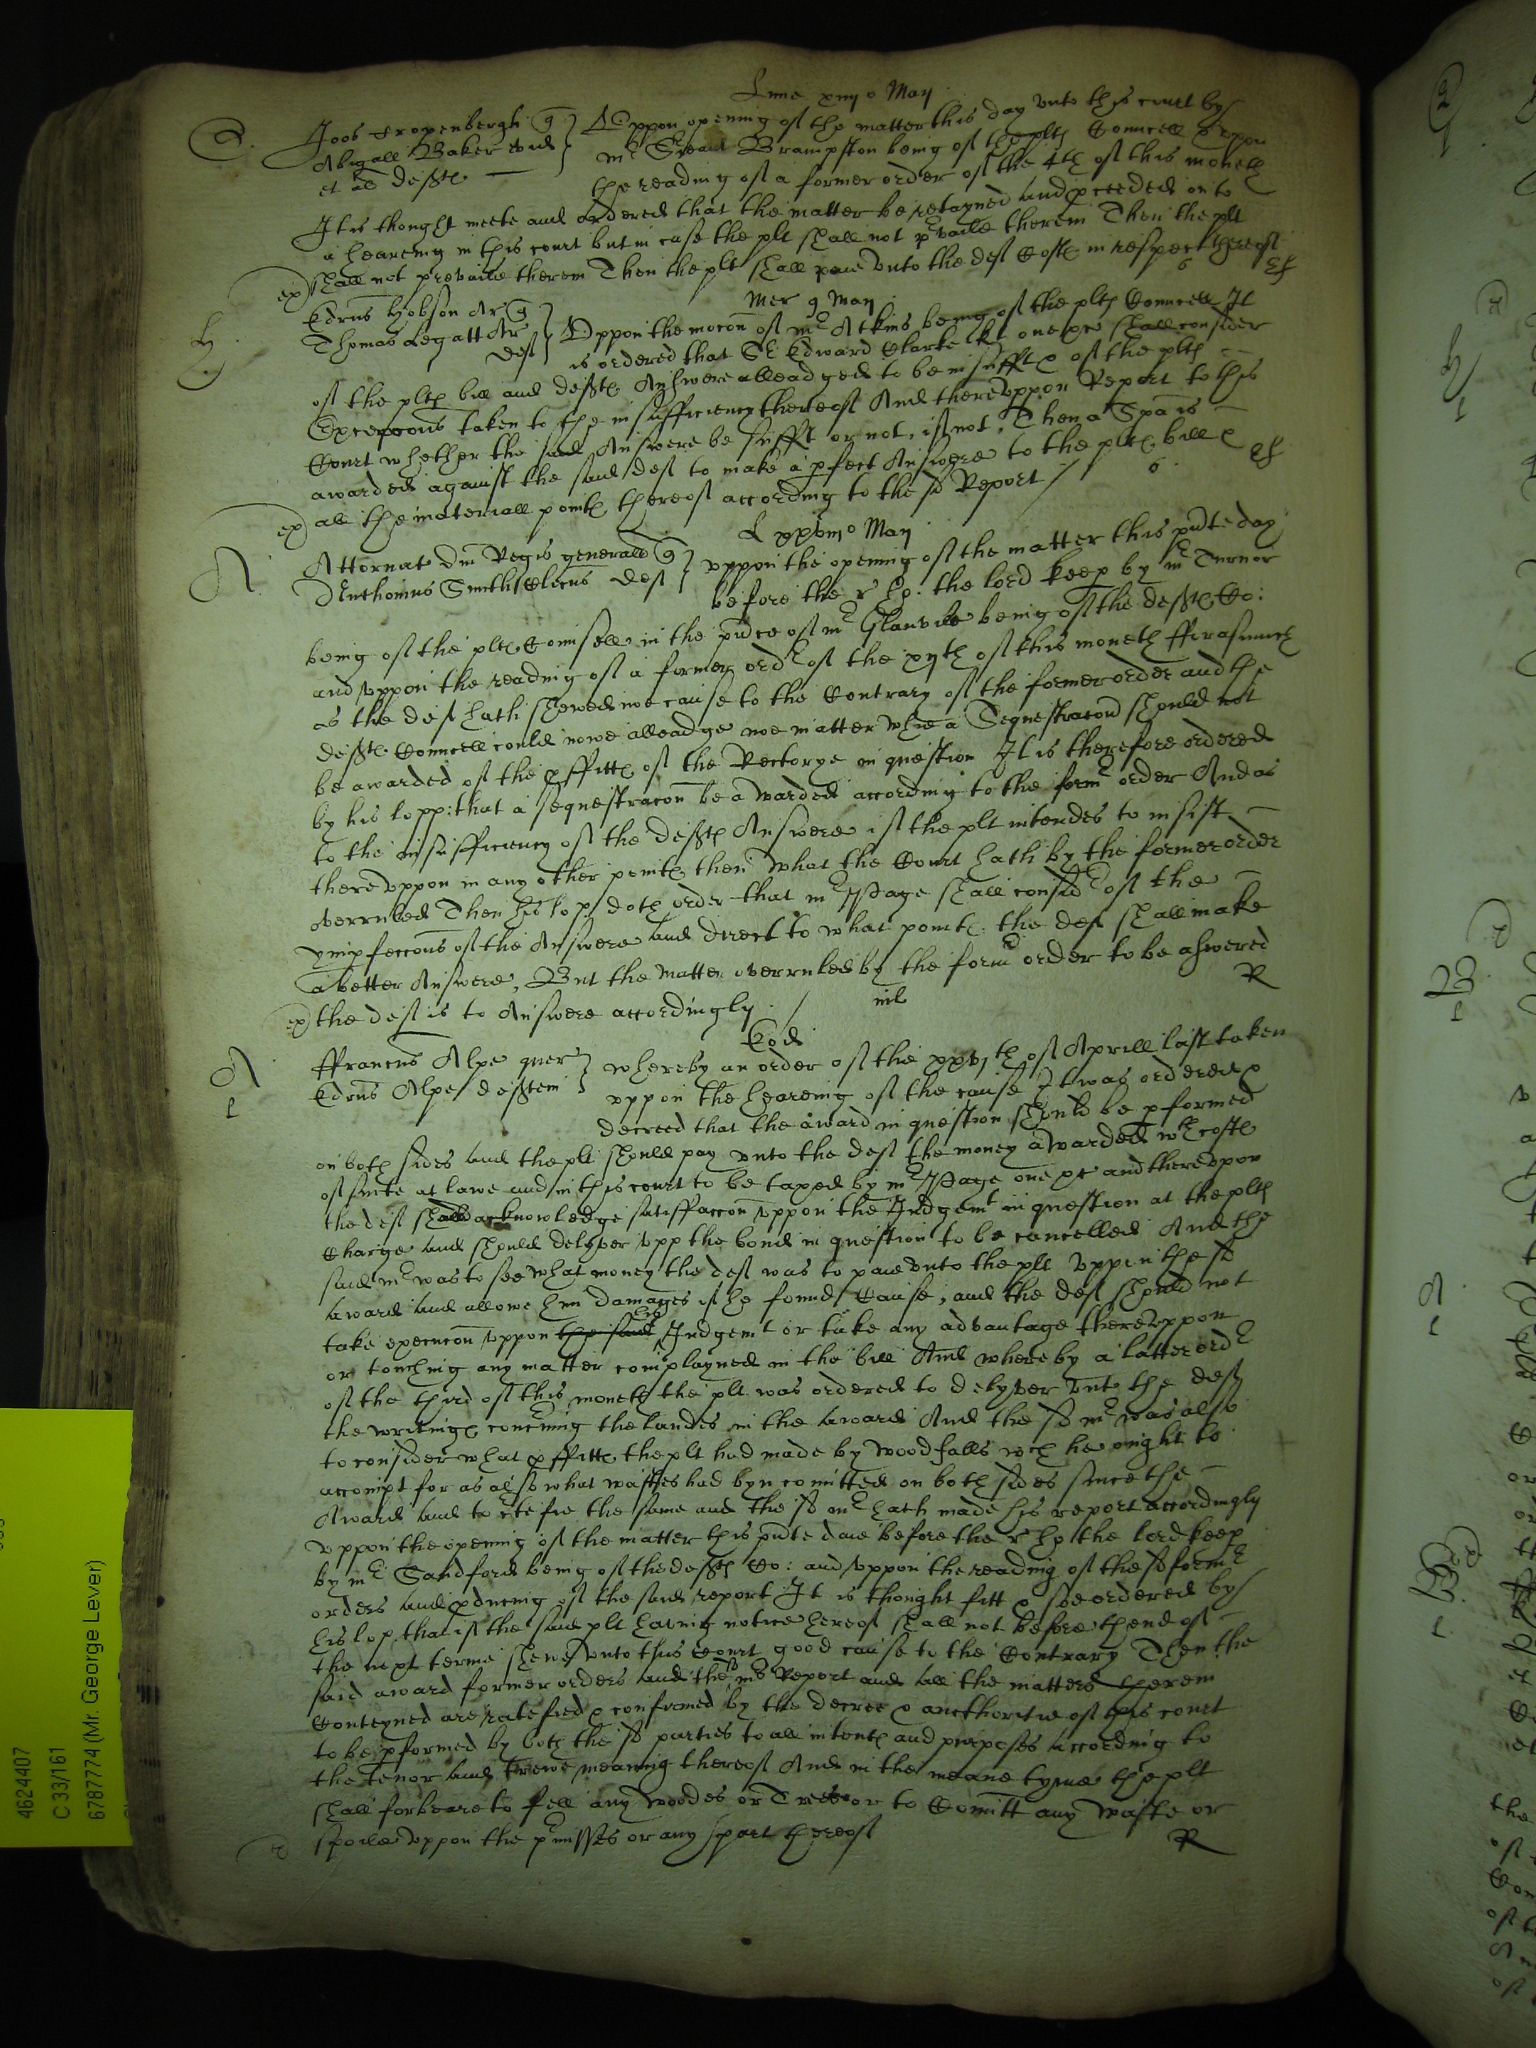 Lune xiiijo Maij
C. Joos Cropenbergh q
Abigall Baker vid
et al defftes
Uppon opening of the matter this day unto this court by
Mr Brampston being of the plts Councell & uppon
the reading of a former order of the 4th of this moneth
It is thought meete and ordered that the matter be retayned and pceeded on to
a heareing in this court but in case the plt shall not pvaile therein Then the plt
shall not prevaile therein Then the plt shall paie unto the deft Costs in respect thereof
ex
H. Edrus Hobson Ar q
Thomas Legatt Ar
deft
Mer 9 Maij
Uppon the mocon of Mr Atkins being of the plts Councell It
is ordered that Sr Edward Clarke kt one &c shall consider
of the plts bill and deffts Answere alleadged to be insufft & of the plts
Excepcons taken to the insufficiency thereof And thereuppon Report to this
Court whether the said Answere be sufft or not, if not, Then a Spa is
awarded against the said deft to make a pfect Answere to the plts bill &
ex all the materiall points thereof according to the sd Report /
L xxviijo Maij
A Attornat Dni Regis generall q
Anthonius Smith Clicus deft
uppon the opening of the matter this pnte day
before the r ho: the lord keep by Mr Turnor
being of the plts Counsell in the pnce of Mr Glanvile being of the deffts Co:
and uppon the reading of a former ordr of the xijth of this moneth fforasmuch
as the deft hath shewed noe cause to the Contrary of the former order and the
deffts Councell could nowe alleadge noe matter whie a Sequestracon should not
be awarded of the pffitts of the Rectorye in question It is therefore ordered
by his lopp: that a sequestracon be awarded according to the formr order And as
to the insufficiency of the deffts Answere if the plt intendes to insist
thereuppon in any other points then what the Court hath by the former order
overruled Then his lop. doth order that Mr Page shall considr of the
ymperfeccons of the Answere and direct to what points the deft shall make
a better Answere, But the matter overruled by the formr order to be answered
ex the deft is to Answere accordingly /
nil
R
Eod
A ffrancus Alpe quer
Edrus Alpe defftem
whereby an order of the xxvjth of Aprill last taken
uppon the heareing of the cause It was ordered &
decreed that the award in question should be pformed
on both sides and the plt should pay unto the deft the money awarded wth costs
of suite at lawe and in this court to be taxed by Mr Page one &c and thereupon
the deft should acknowledge satisfaccon uppon the Judgemt in question at the plts
Charge and should delyver upp the bond in question to be cancelled And the
said Mr was to see what money the deft was to paie unto the plt uppon the sd
award and allowe him damages if he found Cause, and the deft should not
take execucon uppon the said his Judgemt or take any advantage thereuppon
or touching any matter complayned in the bill And whereby a latter ordr
of the third of this moneth the plt was ordered to delyver unto the deft
the writings concning the landes in the award And the sd Mr was also
to consider what pffitts the plt had made by woodfalls wch he ought to
accompt for as also what wastes had byn comitted on both sides since the
Award and to ctefie the same and the sd Mr hath made his report accordingly
uppon the opening of the matter this pnte daie before the r ho the lord keep
by Mr Sandford being of the deffts Co: and uppon the reading of the sd formr
orders and pducing of the said report It is thought fitt & soe ordered by
his lop that if the said plt having notice hereof shall not before thend of
the next terme shew unto this Court good cause to the Contrary Then the
said award former orders and the sd Mrs Report and all the matters therein
Conteyned are ratefied & confirmed by the decree & aucthoritie of this court
to be pformed by both the sd parties to all intents and purposes according to
the tenor and trewe meaning thereof And in the meane tyme the plt
shall forbeare to fell any woodes or Trees or to Comitt any waste or
spoile uppon the pmisses or any part thereof
R
4624407
C 33/161
6787774 (Mr. George Lever)